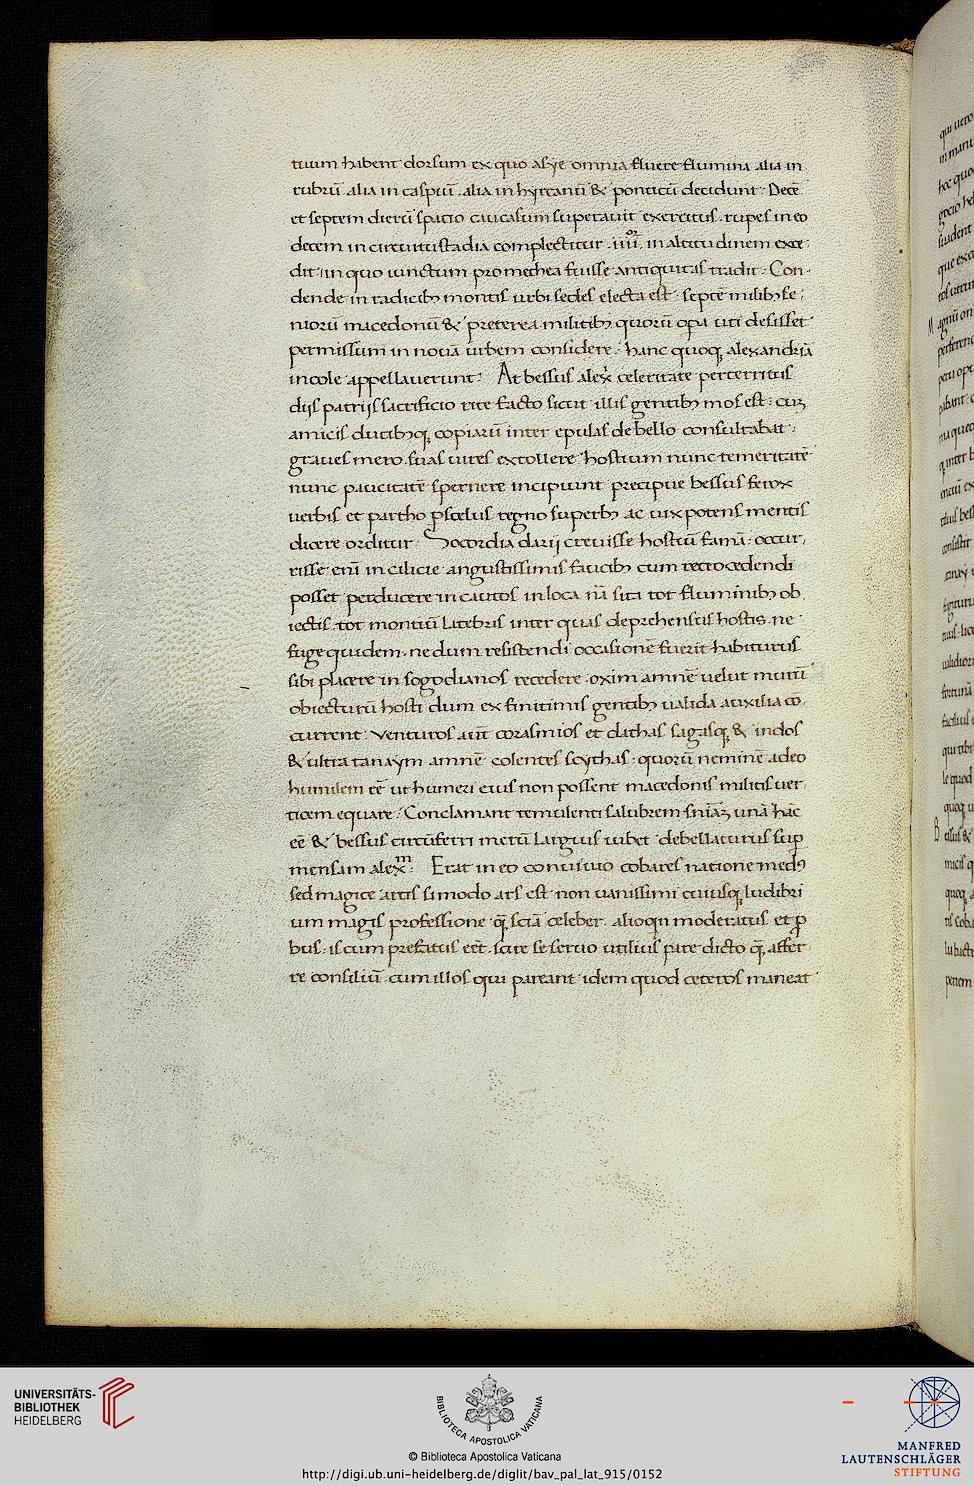 tuum habent dorsum ex quo asye omnia fluere flumina alia in
rubrū alia in caspiū . alia in hyrcanū & ponticū decidunt . Decē
et septem dierū spatio caucasum superauit exercitus . rupes in eo
decem in circuitu stadia complectitur . iiiior in altitudinem exce
dit in quo uinctum promethea fuisse antiquitas tradit . Con
dende in radicibꝫ montis urbi sedes electa est . septē milibꝫ se
niorū macedonū & preterea militibꝫ quorū opa uti desisset
permissum in nouā urbem considere . hanc quoqꝫ alexandriā
incole appellauerunt . At bessus alex̄ celeritate perterritus
diis patriis sacrificio rite facto sicut illis gentibꝫ mos est . cuꝫ
amicis ducibꝫqꝫ copiarū inter epulas de bello consultabat .
graues mero . suas uires extollere hostium nunc temeritatē
nunc paucitatē spernere incipiunt precipue bessus ferox
uerbis et partho ꝑ scelus regno superbꝰ ac uix potens mentis
dicere orditur . Socordia darii creuisse hostiū famā . occur
risse eni in cilicie angustissimis faucibꝫ cum retrocedendi
posset perducere in cautos in loca nā situ tot fluminibꝫ ob
iectis . tot montiū latebris inter quas deprehensus hostis . ne
fuge quidem . ne dum resistendi occasionē fuerit habiturus
sibi placere in sogodianos recedere . oxim amnē uelut murū
obiecturū hosti dum ex finitimis gentibꝫ ualida auxilia cō
current . Venturos aut̄ corasmios et dathas sagasqꝫ & indos
& ultra tanaym amnē colentes scythas . quorū neminē adeo
humilem eē ut humeri eius non possent macedonis militis uer
ticem equare . Conclamant temulenti salubrem sniāꝫ unā hāc
eē & bessus circūferri merū largius iubet debellaturus suꝑ
mensam alexm . Erat in eo conuiuio cobares natione medꝰ
sed magice artis si modo ars est non uanissimi cuiusqꝫ ludibri
um magis professione q̄ sciā celeber . alioqn moderatus et ꝓ
bus . is cum prefatus eēt . scire se seruo utilius pare dicto q̄ affer
re consiliū . cum illos qui pareant idem quod ceteros maneat
UNIVERSITÄTS-
BIBLIOTHEK
HEIDELBERG
BIBLIOTECA APOSTOLICA VATICANA
© Biblioteca Apostolica Vaticana
http://digi.ub.uni-heidelberg.de/diglit/bav_pal_lat_915/0152
MANFRED
LAUTENSCHLÄGER
STIFTUNG